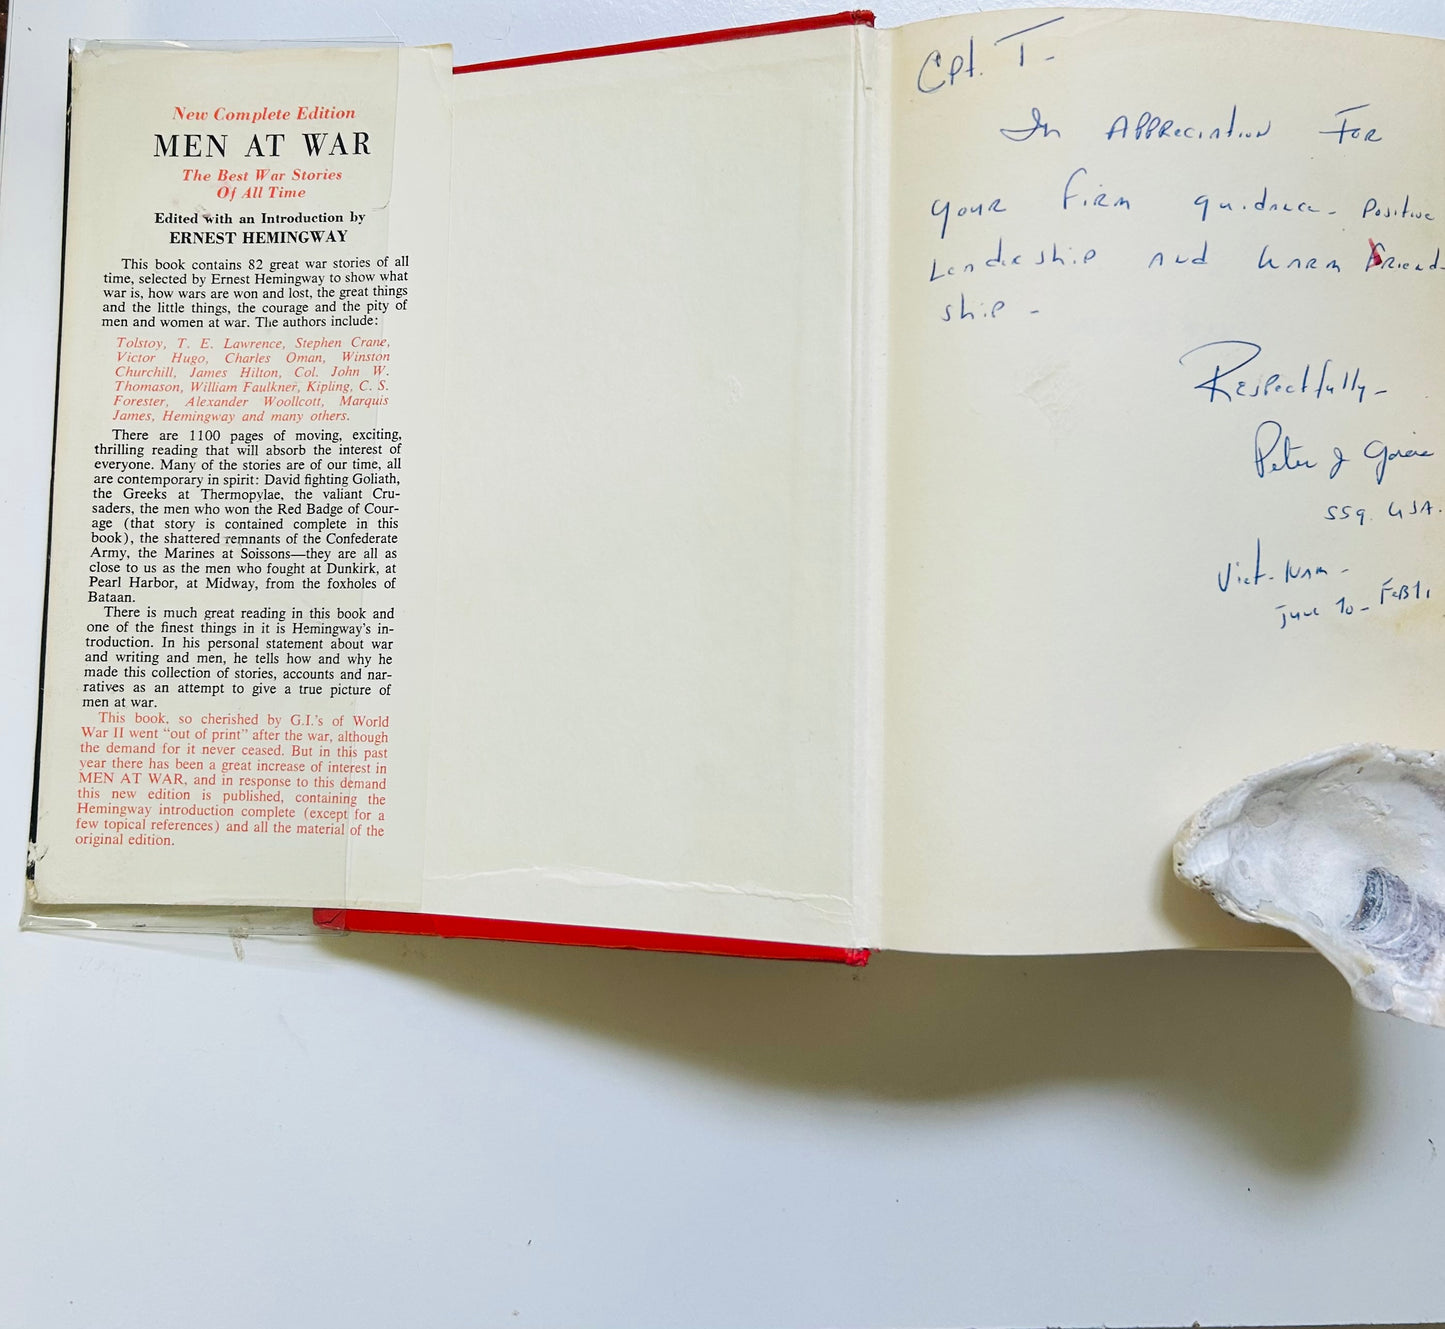 New Complete Edition
MEN AT WAR
The Best War Stories
Of All Time
Edited with an Introduction by
ERNEST HEMINGWAY
This book contains 82 great war stories of all
time, selected by Ernest Hemingway to show what
war is, how wars are won and lost, the great things
and the little things, the courage and the pity of
men and women at war. The authors include:
Tolstoy, T. E. Lawrence, Stephen Crane,
Victor Hugo, Charles Oman, Winston
Churchill, James Hilton, Col. John W.
Thomason, William Faulkner, Kipling, C. S.
Forester, Alexander Woollcott, Marquis
James, Hemingway and many others.
There are 1100 pages of moving, exciting,
thrilling reading that will absorb the interest of
everyone. Many of the stories are of our time, all
are contemporary in spirit: David fighting Goliath,
the Greeks at Thermopylae, the valiant Cru-
saders, the men who won the Red Badge of Cour-
age (that story is contained complete in this
book), the shattered remnants of the Confederate
Army, the Marines at Soissons—they are all as
close to us as the men who fought at Dunkirk, at
Pearl Harbor, at Midway, from the foxholes of
Bataan.
There is much great reading in this book and
one of the finest things in it is Hemingway's in-
troduction. In his personal statement about war
and writing and men, he tells how and why he
made this collection of stories, accounts and nar-
ratives as an attempt to give a true picture of
men at war.
This book, so cherished by G.I.'s of World
War II went "out of print" after the war, although
the demand for it never ceased. But in this past
year there has been a great increase of interest in
MEN AT WAR, and in response to this demand
this new edition is published, containing the
Hemingway introduction complete (except for a
few topical references) and all the material of the
original edition.
Cpt. T-
In Appreciation For
your firm guidance- Positive
Leadership and warm Friend-
ship -
Respectfully-
Peter J
SSg. USA.
Viet-Nam -
June 70- FEB 71